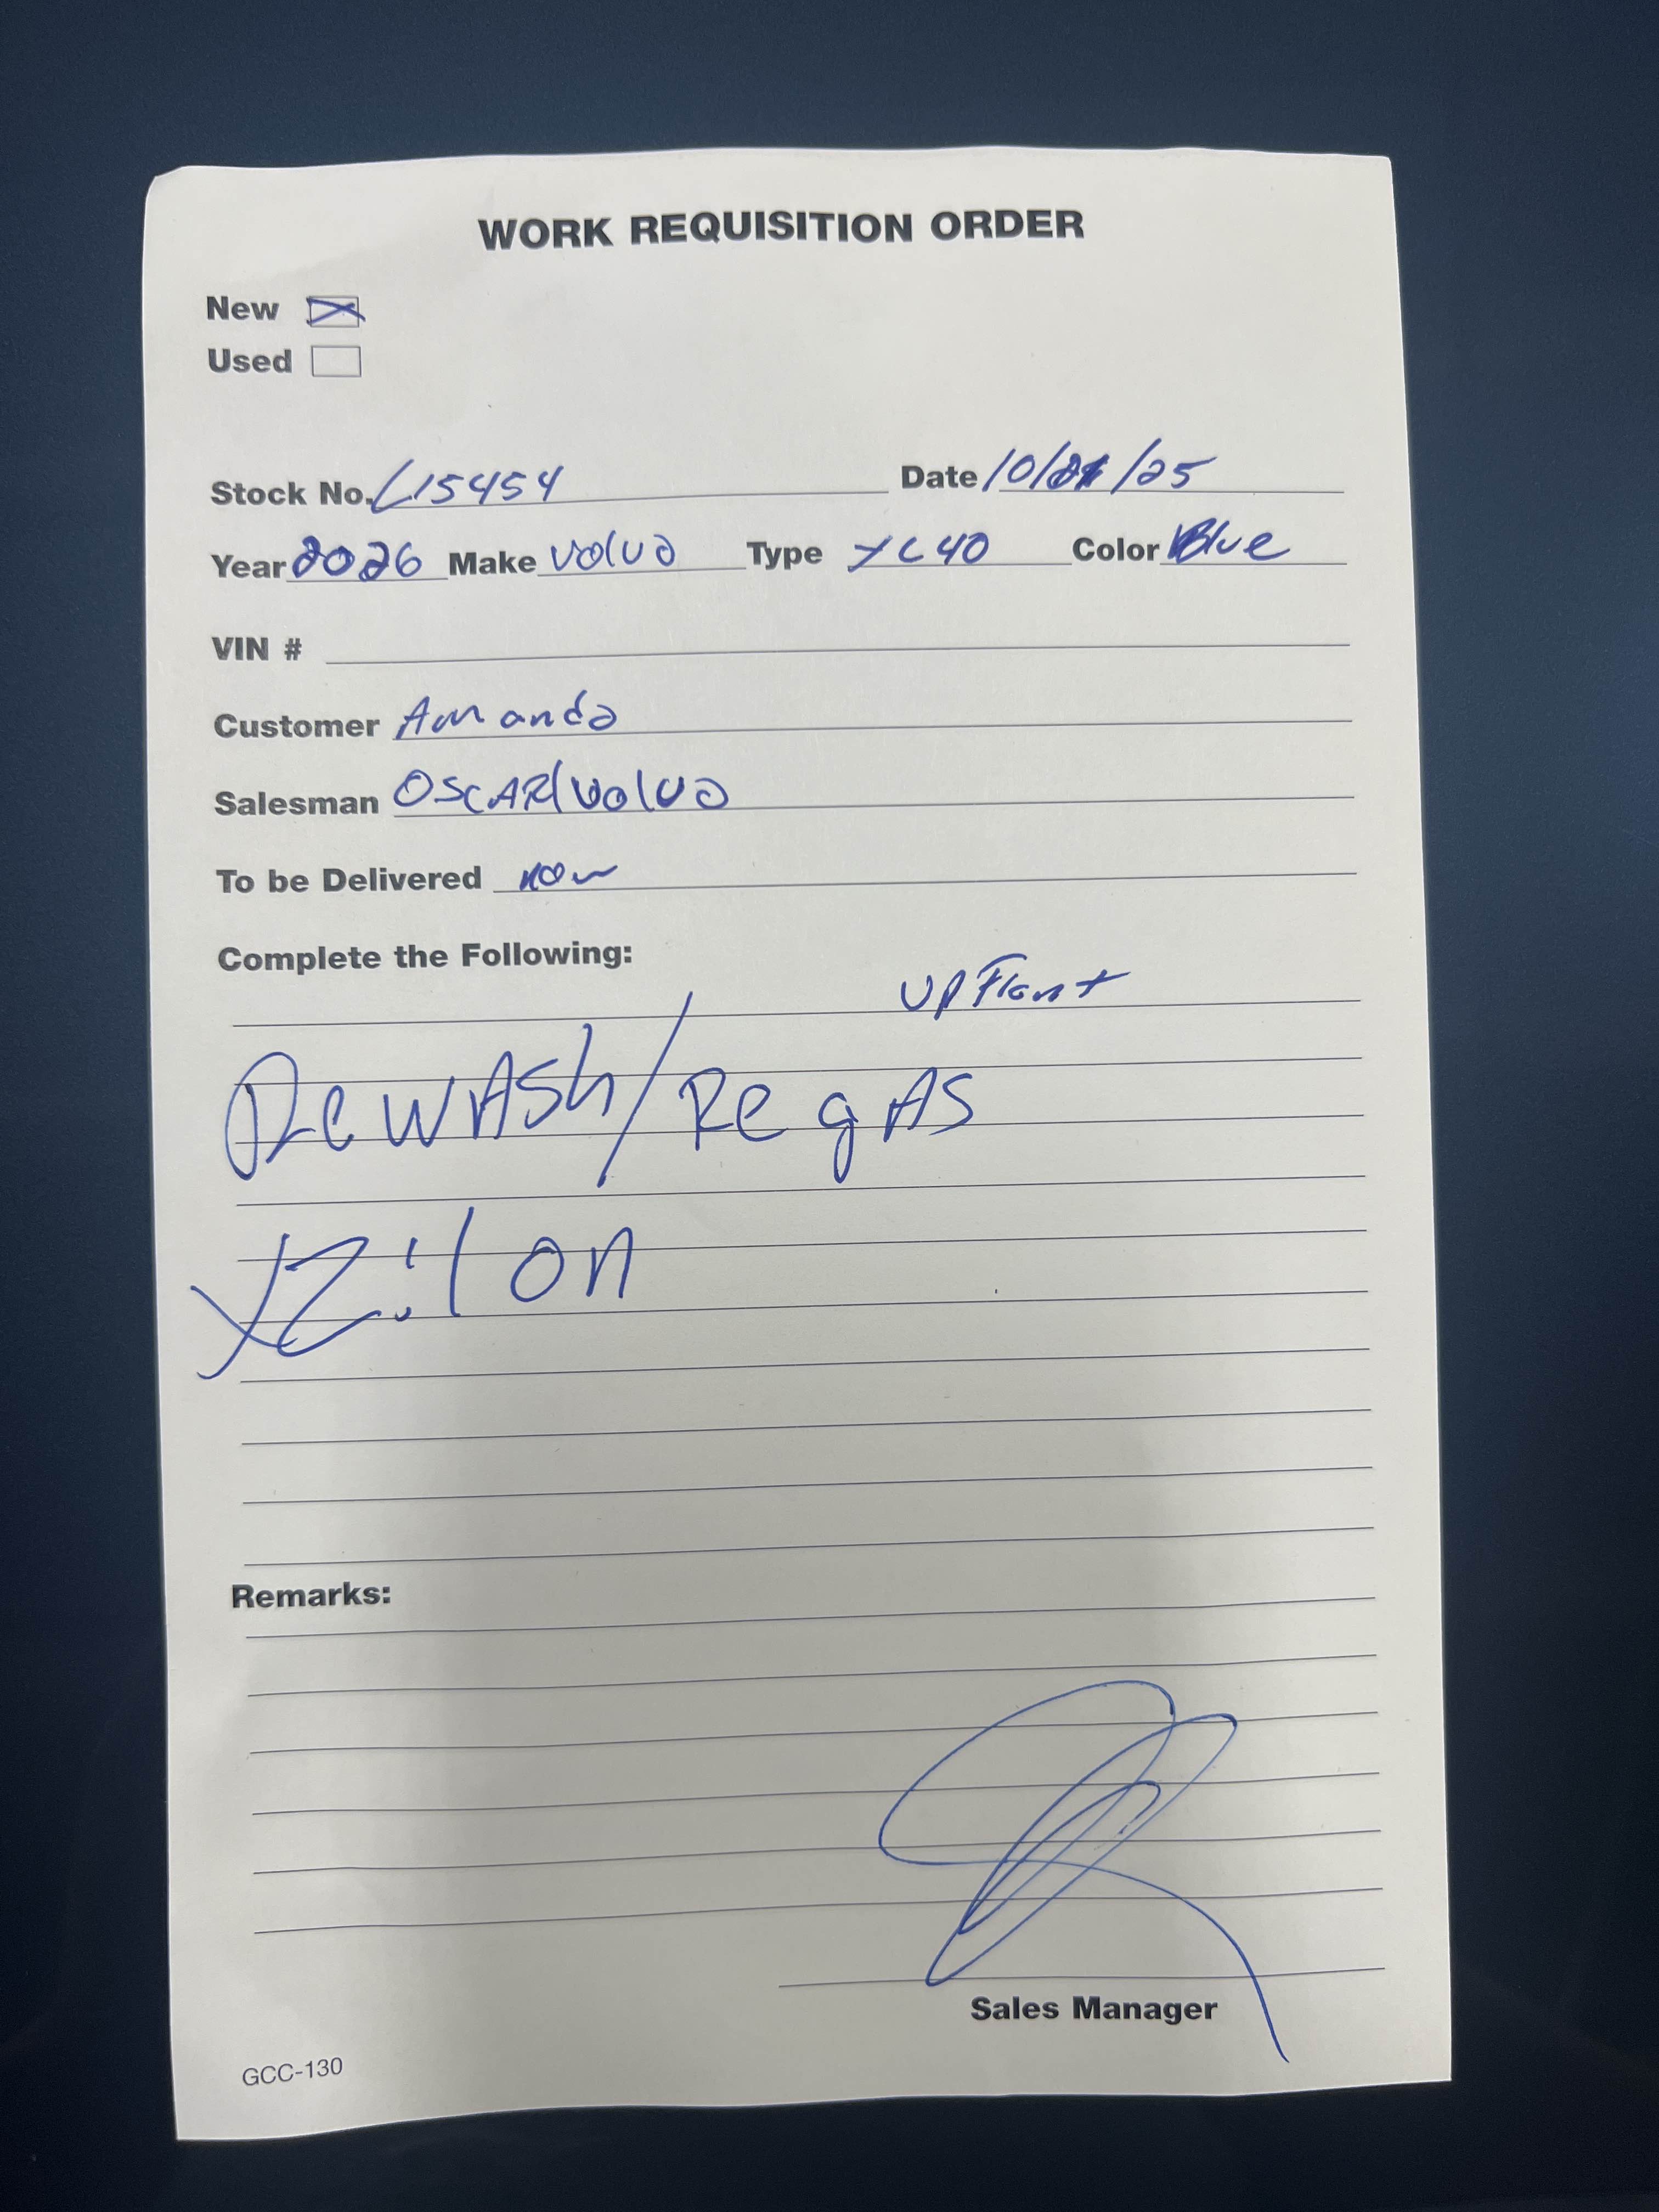 WORK REQUISITION ORDER
New
Used
Stock No. L15454 Date 10/ /25
Year 2026 Make Volvo Type XC40 Color Blue
VIN #
Customer Amanda
Salesman OSCAR/Volvo
To be Delivered now
Complete the Following:
UPFront
ReWASh/RegAS
XZilon
Remarks:
Sales Manager
GCC-130